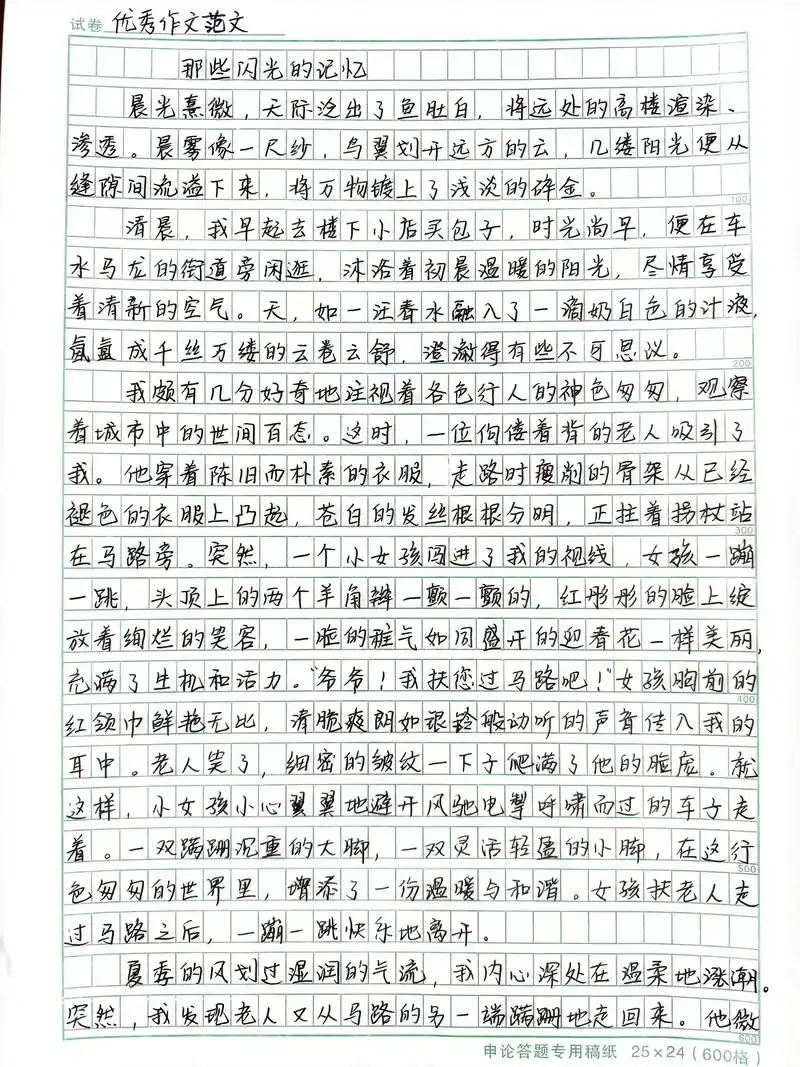 试卷 优秀作文范文
那些闪光的记忆
晨光熹微，天际泛出了鱼肚白，将远处的高楼渲染、
渗透。晨雾像一尺纱，鸟翼划开远方的云，几缕阳光便从
缝隙间流溢下来，将万物镀上了浅淡的碎金。
100
清晨，我早起去楼下小店买包子，时光尚早，便在车
水马龙的街道旁闲逛，沐浴着初晨温暖的阳光，尽情享受
着清新的空气。天，如一汪春水融入了一滴奶白色的汁液，
氤氲成千丝万缕的云卷云舒，澄澈得有些不可思议。
200
我颇有几分好奇地注视着各色行人的神色匆匆，观察
着城市中的世间百态。这时，一位佝偻着背的老人吸引了
我。他穿着陈旧而朴素的衣服，走路时瘦削的骨架从已经
褪色的衣服上凸起，苍白的发丝根根分明，正拄着拐杖站
300
在马路旁。突然，一个小女孩闯进了我的视线，女孩一蹦
一跳，头顶上的两个羊角辫一颤一颤的，红彤彤的脸上绽
放着绚烂的笑容，一脸的稚气如同盛开的迎春花一样美丽，
充满了生机和活力。“爷爷！我扶您过马路吧！”女孩胸前的
400
红领巾鲜艳无比，清脆爽朗如银铃般动听的声音传入我的
耳中。老人笑了，细密的皱纹一下子爬满了他的脸庞。就
这样，小女孩小心翼翼地避开风驰电掣呼啸而过的车子走
着。一双蹒跚沉重的大脚，一双灵活轻盈的小脚，在这行
500
色匆匆的世界里，增添了一份温暖与和谐。女孩扶老人走
过马路之后，一蹦一跳快乐地离开。
夏季的风划过湿润的气流，我内心深处在温柔地涨潮。
突然，我发现老人又从马路的另一端蹒跚地走回来。他微
600
申论答题专用稿纸 25×24（600格）